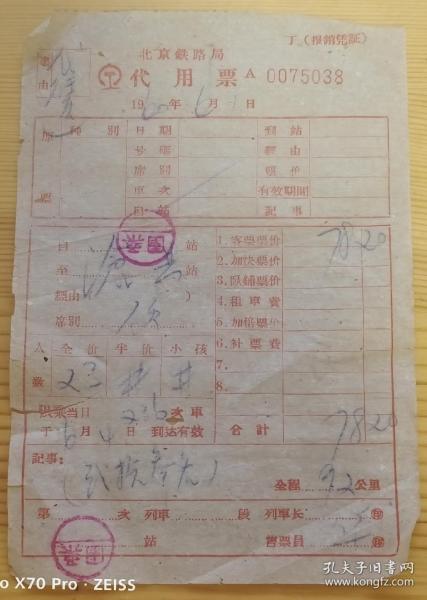 丁（报销凭証）
北京鉄路局
事由
代用票 A 0075038
1960年6月1日
原票
种别 日期 到站
号碼 經由
席别 票价
車次 有效期間
日站 記事
团票
自 站
至 站
經由
席别
1.客票票价 78.20
2.加快票价
3.臥鋪票价
4.租車費
5.加倍票价
6.补票費
7.
8.
人数 全价 半价 小孩
23
限乘当日 次車
于6月4日到达有效
合計 78.20
記事：
（貳拾叁人）
全程 92 公里
第 次列車 段 列車长 印
站 售票員 印
团票
o X70 Pro · ZEISS
孔夫子旧书网
www.kongfz.com